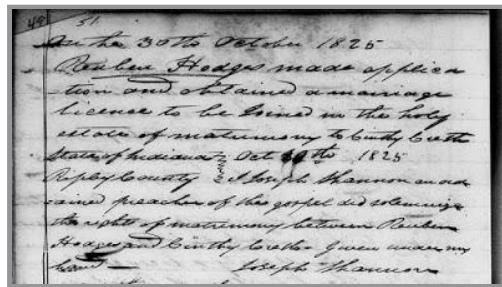 48 51.
On the 30th October 1825
Reuben Hodges made applica
tion and obtained a marriage
licence to be Joined in the holy
estate of matrimony to Cinthy
State of Indiana Oct 1825
Ripley County I Joseph Shannon an or
dained preacher of the gospel did solemnize
the rights of matrimony between Reuben
Hodges and Cinthy Given under my
hand Joseph Shannon